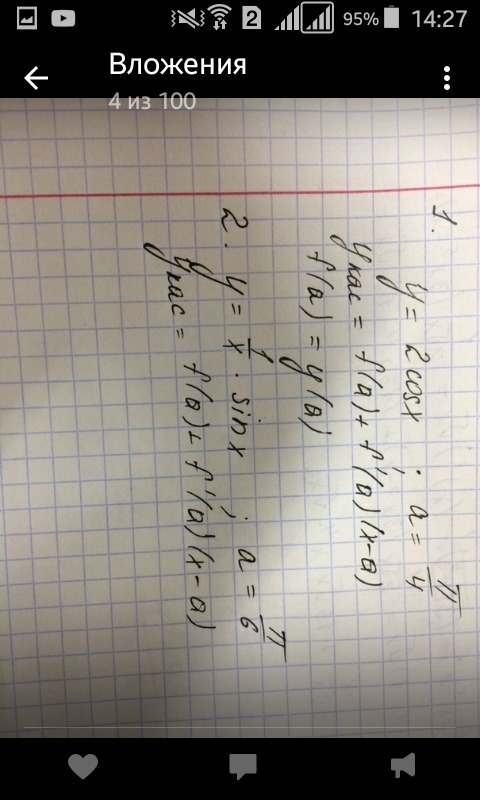 95% 14:27
Вложения
4 из 100
1. y = 2cosx ; a = π/4
yкас = f(a) + f'(a)(x-a)
f(a) = y(a)
2. y = 1/x · sinx ; a = π/6
yкас = f(a) + f'(a)(x-a)